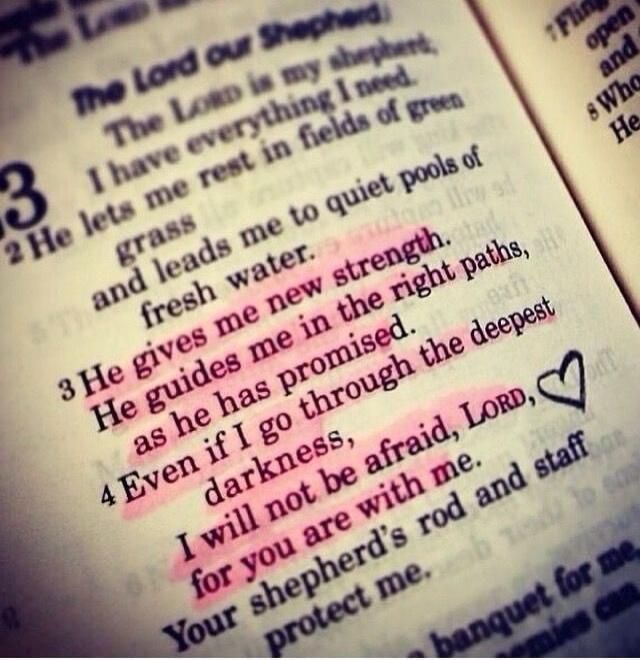 The LORD
The Lord our Shepherd
3 The LORD is my shepherd;
I have everything I need.
2 He lets me rest in fields of green
grass
and leads me to quiet pools of
fresh water.
3 He gives me new strength.
He guides me in the right paths,
as he has promised.
4 Even if I go through the deepest
darkness,
I will not be afraid, LORD,
for you are with me.
Your shepherd's rod and staff
protect me.
banquet for me
7 Fling
open
and
8 Who
He